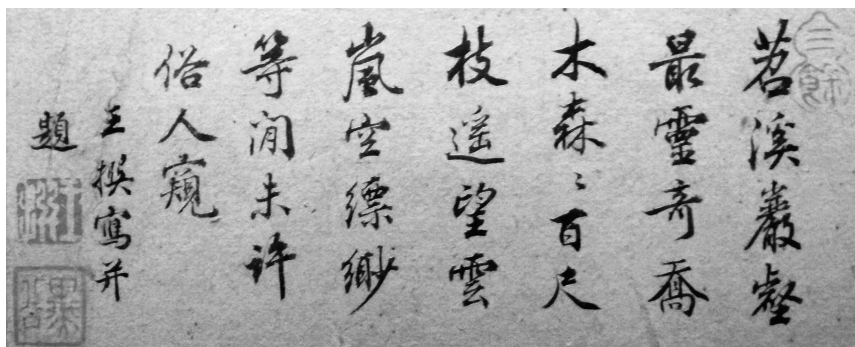 苕溪巖壑
最靈奇喬
木森〻百尺
枝遥望雲
嵐空縹緲
等閒未許
俗人窺
王撰寫并
題